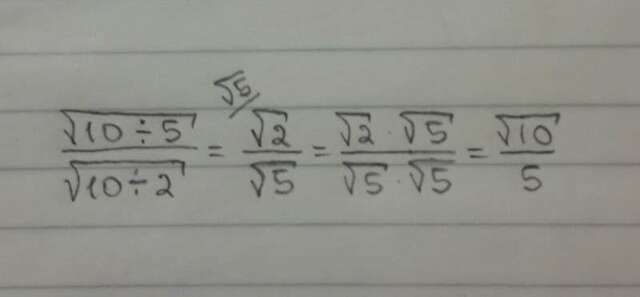 √5/
√10÷5/√10÷2 = √2/√5 = √2·√5/√5·√5 = √10/5